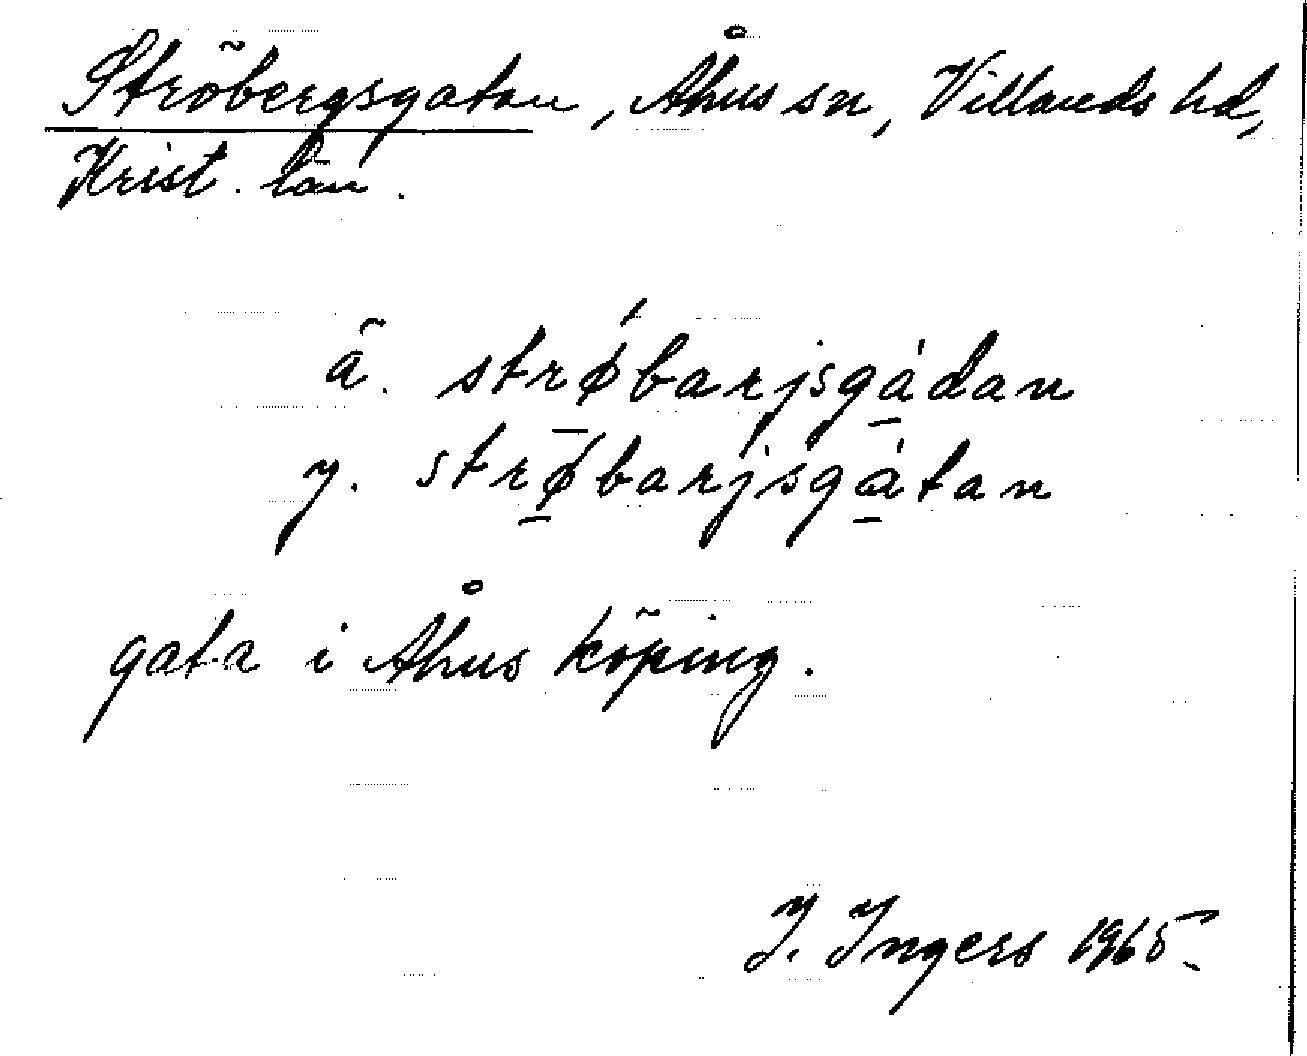 Ströbergsgatan, Åhus sn, Villands hd,
Krist. län.
ä. strǿbarjsgádan
y. strǿbarjsgátan
gata i Åhus köping.
I. Ingers 1965.